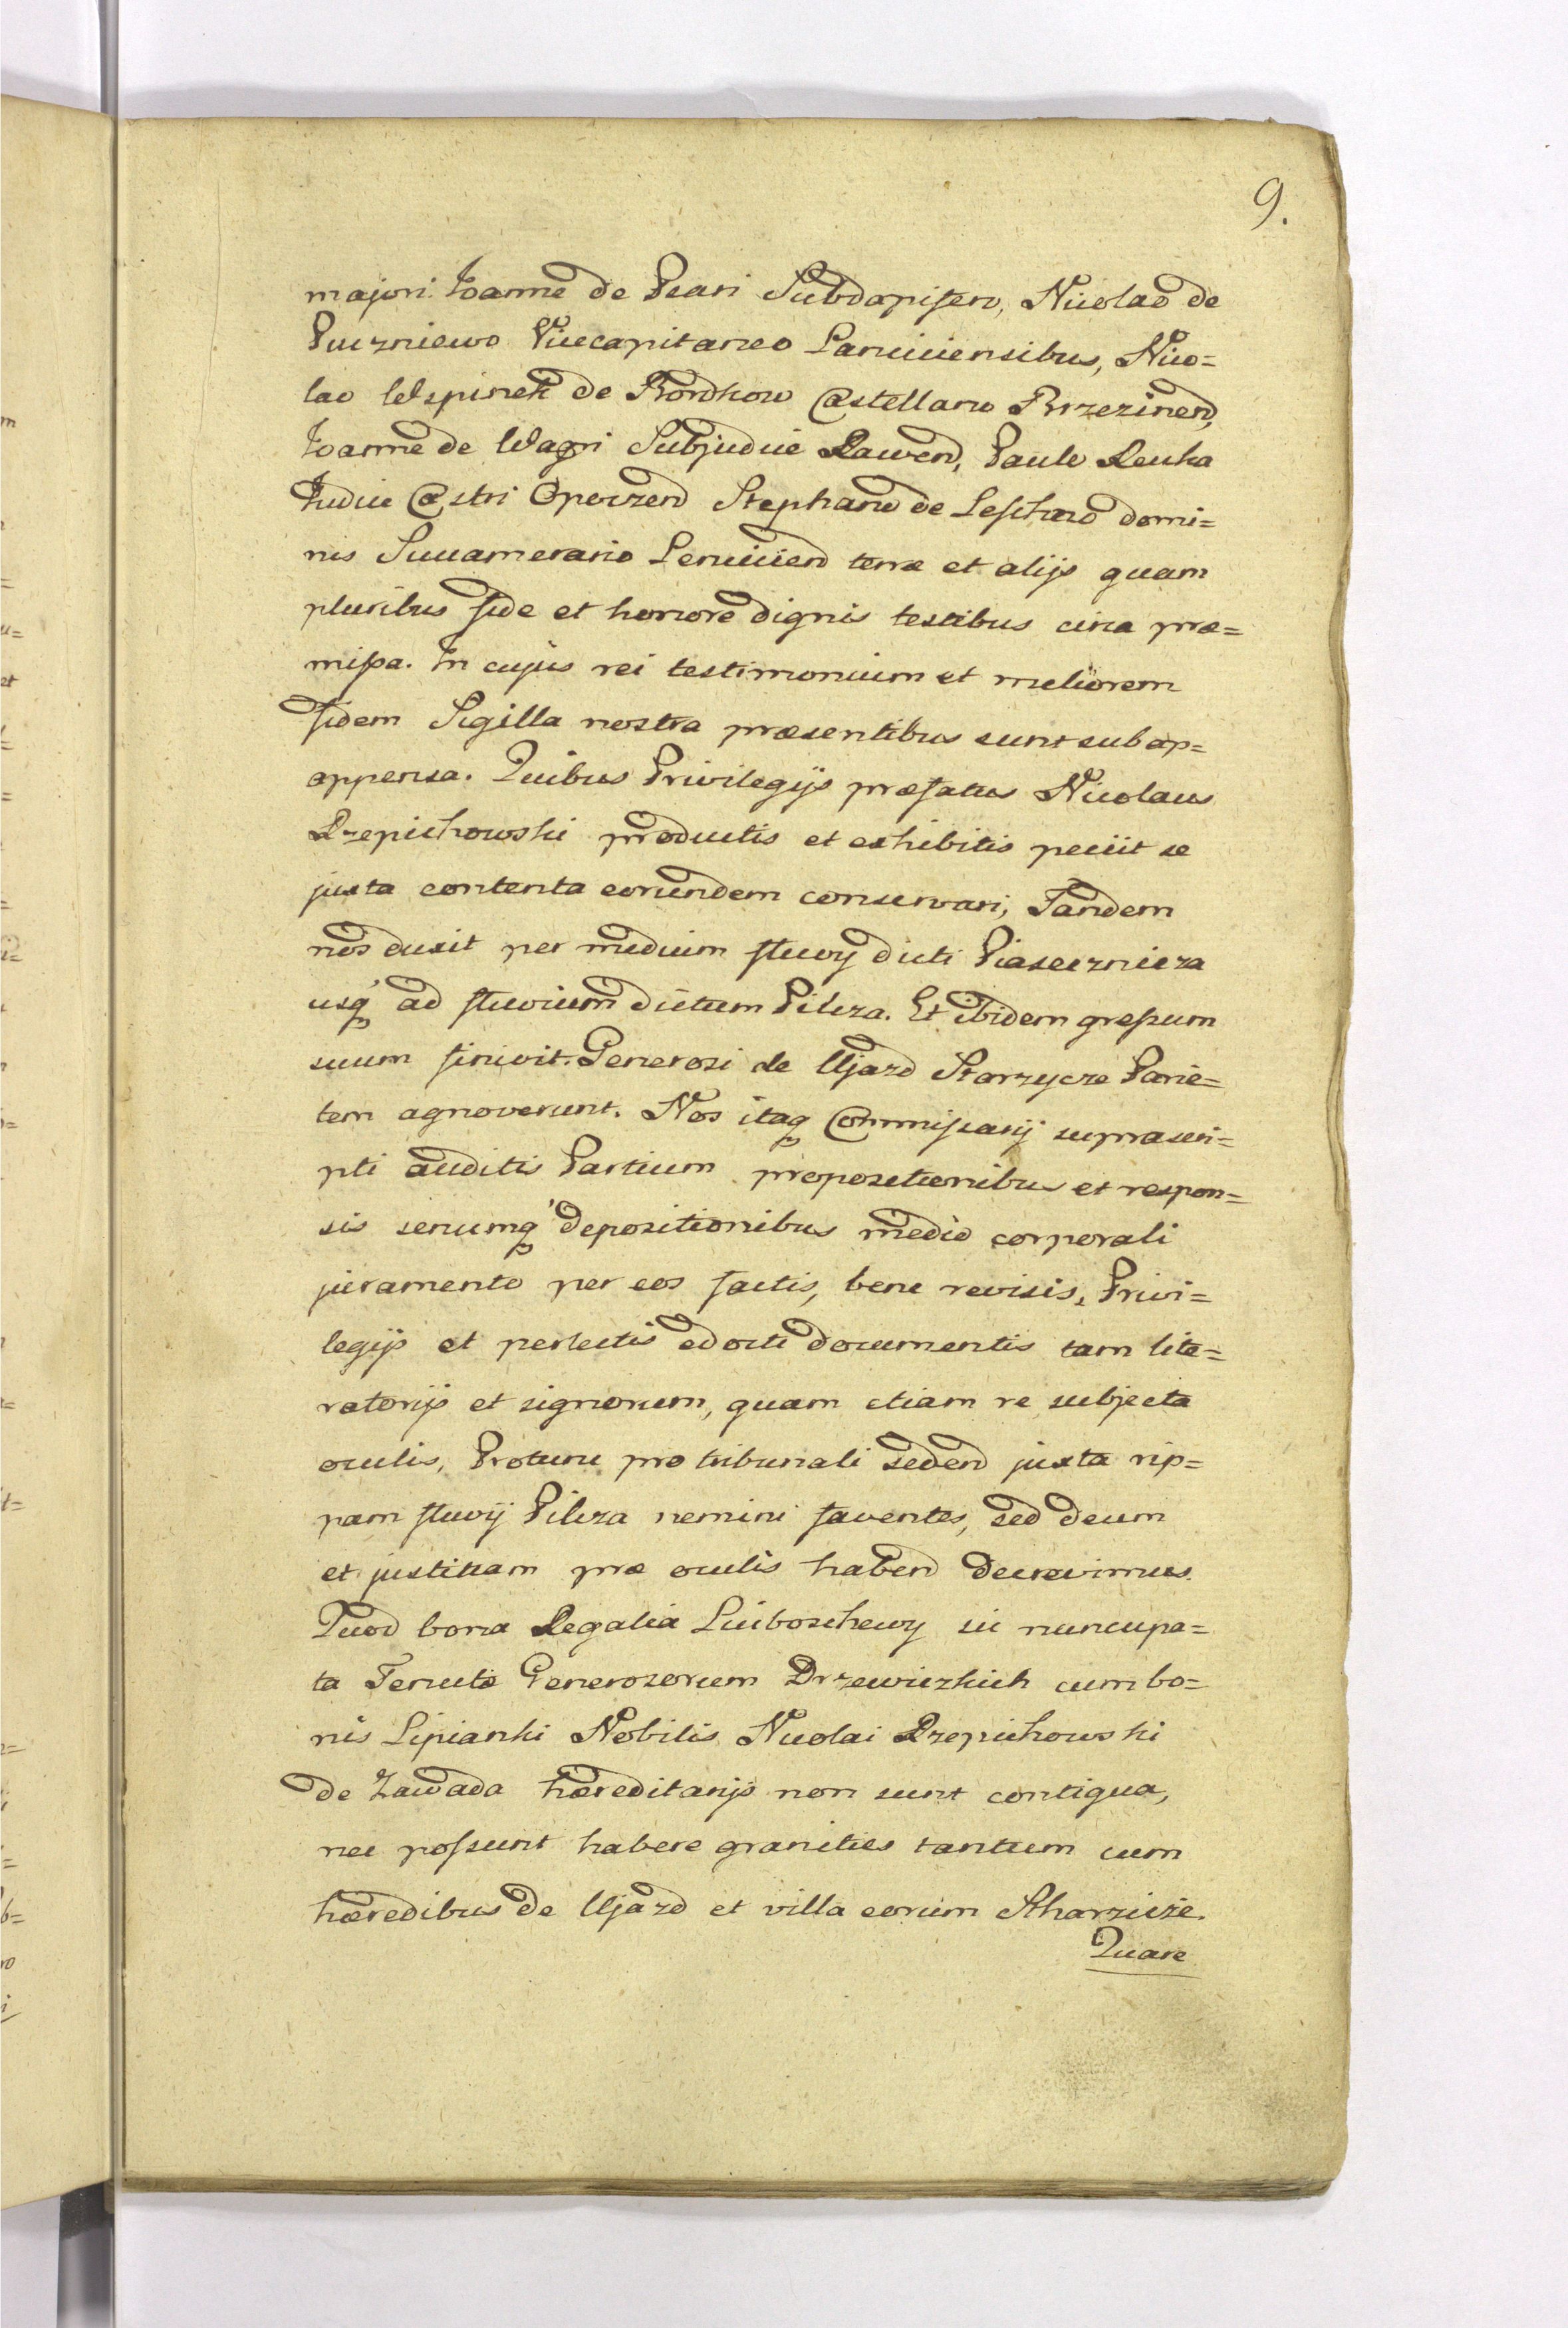 9.
majori. Joanne de Peari Subdapifero, Nicolao de
Puczniewo Vicecapitaneo Lanciciensibus, Nico=
lao Wspinek de Bordkow Castellano Brzezinen,
Joanne de Wagri Subjudice Rawen, Paulo Reuka
Judice Castri Opoczen Stephano de Leschno domi=
nis Succamerario Lencicien terræ et alijs quam
pluribus fide et honore dignis testibus circa præ=
missa. In cujus rei testimonium et meliorem
fidem Sigilla nostra præsentibus sunt subap=
appensa. Quibus Privilegijs præfatus Nicolaus
Rzepichowski productis et exhibitis peciit se
juxta contenta eorundem conservari, Tandem
nos duxit per medium fluvij dicti Piasecznicza
usq ad fluvium dictum Pilcza. Et ibidem gressum
suum finivit. Generosi de Ujazd Starzycze Parie=
tem agnoverunt. Nos itaq Commissarij suprascri=
pti auditis Partium propositionibus et respon=
sis senumq depositionibus medio corporali
juramento per eos factis, bene revisis, Privi=
legijs et perlectis edocti documentis tam lite=
ratorijs et signorum, quam etiam re subjecta
oculis, Protunc pro tribunali seden juxta rip=
pam fluvij Pilcza nemini faventes, sed deum
et justitiam præ oculis haben decrevimus.
Quod bona Regalia Luiboschewy sic nuncupa=
ta Tenutæ Generosorum Drzewiczkich cum bo=
nis Lipianki Nobilis Nicolai Rzepichowski
de Zawada hæreditarijs non sunt contigua,
nec possunt habere granities tantum cum
hæredibus de Ujazd et villa eorum Starzicze.
Quare